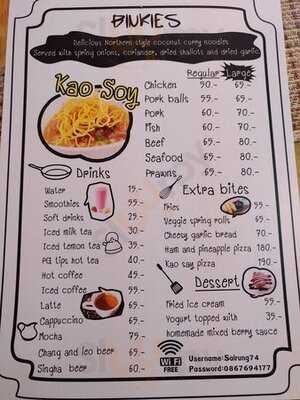 BINKIES
Delicious Northern style coconut curry noodles
Served with spring onions, coriander, dried shallots and dried garlic
Kao-Soy
Regular Large
Chicken 50.- 65.-
Pork balls 55.- 65.-
Pork 60.- 70.-
Fish 60.- 70.-
Beef 65.- 80.-
Seafood 65.- 80.-
Prawns 65.- 80.-
Drinks
Water 15.-
Smoothies 55.-
Soft drinks 25.-
Iced milk tea 30.-
Iced lemon tea 30.-
PG tips hot tea 40.-
Hot coffee 45.-
Iced coffee 55.-
Latte 65.-
Cappuccino 65.-
Mocha 75.-
Chang and leo beer 65.-
Singha beer 60.-
Extra bites
Fries 55.-
Veggie spring rolls 65.-
Cheesy garlic bread 70.-
Ham and pineapple pizza 180.-
Kao say pizza 190.-
Dessert
Fried ice cream 55.-
Yogurt topped with 35.-
homemade mixed berry sauce
Wi Fi
FREE
Username: Sairung74
Password: 0867694177